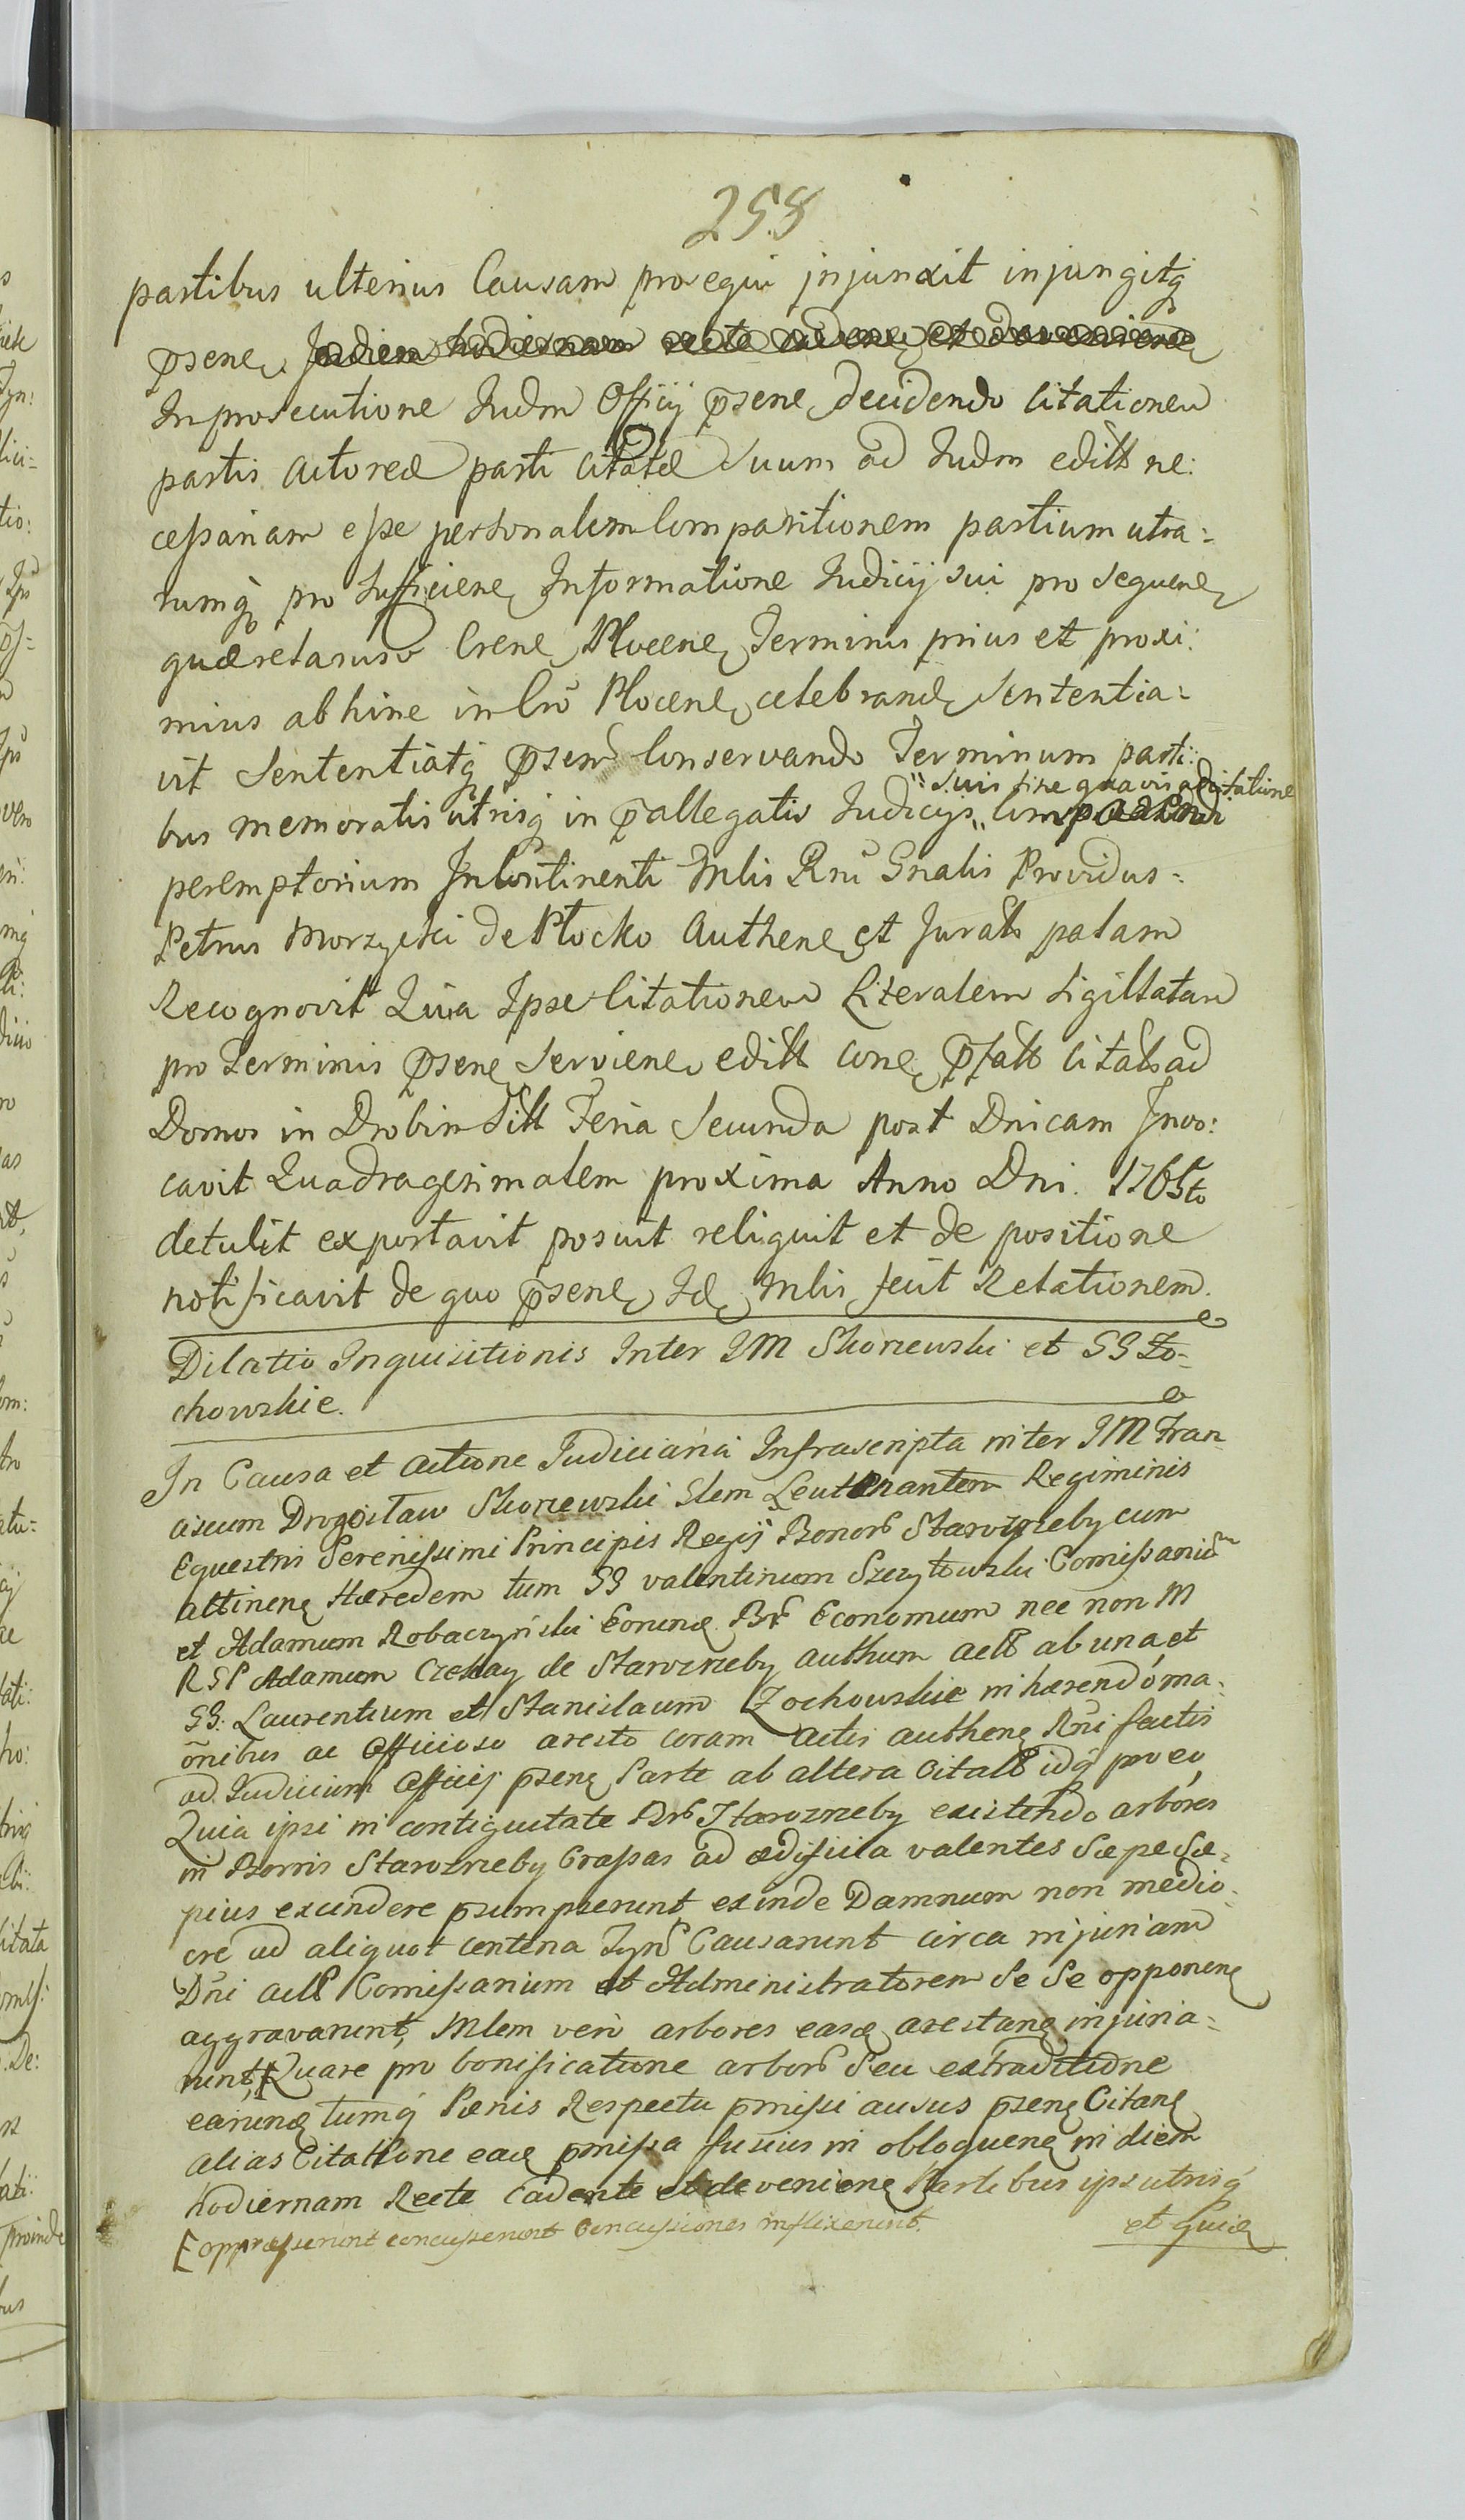 258
partibus ulterius Causam prosequi injunxit injungitq
p̄sene
In prosecutione Iudm Officij p̄sene decidendo Citationem
partis Actoreæ parti Citatæ Suum ad Iudm editt ne:
cessariam esse personalem Comparitionem partium utra:
rumq pro Sufficiene Informatione Iudicij sui pro Sequene
Crene Plocene Terminis prius et proxi:
mius ab hinc in Cro Plocene celebrand Sententia:
vit Sententiatq p̄sen Conservando Terminum parti:
bus memoratis utrisq in p̄allegatis Iudicijs „ Comparendi
„ Suis sine quavis
peremptorium In Continenti Mlis Rni Gnalis Providus
Petrus Morzycki de Płocko Authene et Jurats palam
Recognovit Quia Ipse Citationem Literalem Sigillatam
pro Terminis p̄sene Serviene editt cone p̄fatt Citats ad
Domos in Drobin Sitt Feria Secunda post Dnicam Invo:
cavit Quadragesimalem proxima Anno Dni. 1765to
detulit exportavit posuit reliquit et de positione
notificavit de quo p̄sene Id Mlis fecit Relationem.
Dilatio Inquisitionis Inter IM Skorzewski et GG Żo-
chowskie.
In Causa et Actione Judiciaria Infrascripta inter IM Fran
ciscum Drogosław Skorzewski Slem Leutenantem Regiminis
Equestris Serenissimi Principis Regij Bonor Starozreby cum
attinen Hæredem tum GG Valentinum Szczytowski Comissariũ
et Adamum Robaczyński Eorund Br Economum nec non M
RSP Adamum Czekay de Starozreby Authum actt ab una et
GG: Laurentium et Stanislaum Zochowskie inhærendo ma:
ōnibus ac Officioso aresto coram Actis authene Rn̄i factis
ad Iudicium Officij p̄sene Parte ab altera Citatt idq pro eo,
Quia ipsi in contiguitate Br Starozreby existendo arbores
in Borris Starozreby Crassas ad ædificia valentes Sæpe Sæ-
pius excindere p̄sumpserunt exinde Damnum non medio-
cre ad aliquot centena Tyn Causarunt circa injuriam
Dn̄i actt Comissarium et Administratorem Se Se opponene
aggravarunt, Mlem vero arbores easd arestane injuria-
runt, Quare pro bonificatione arbor Seu extraditione
earund tumq Pænis Respectu p̄missi ausus p̄sene Citane
alias Citatione ead p̄missa fusius in obloquene in diem
hodiernam Recte Cadente et devenien Partibus ips utrisq
[oppresserunt concusserunt Concussiones inflixerunt.
et Quid